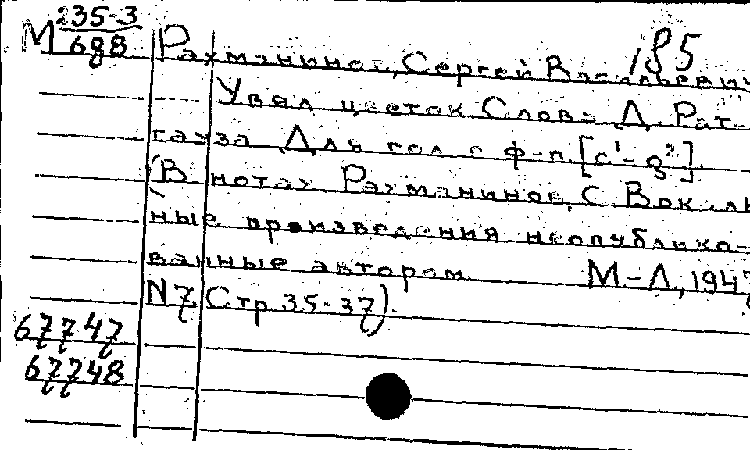 М 235-3/698
185
Рахманинов, Сергей Васильевич
Увял цветок Слова Д. Рат-
гауза Для гол с ф-п [c¹-g²]
(В нотах Рахманинов, С. Вокаль
ные произведения неопублико-
ванные автором М-Л, 1947
N 7 Стр 35-37).
67747
67748